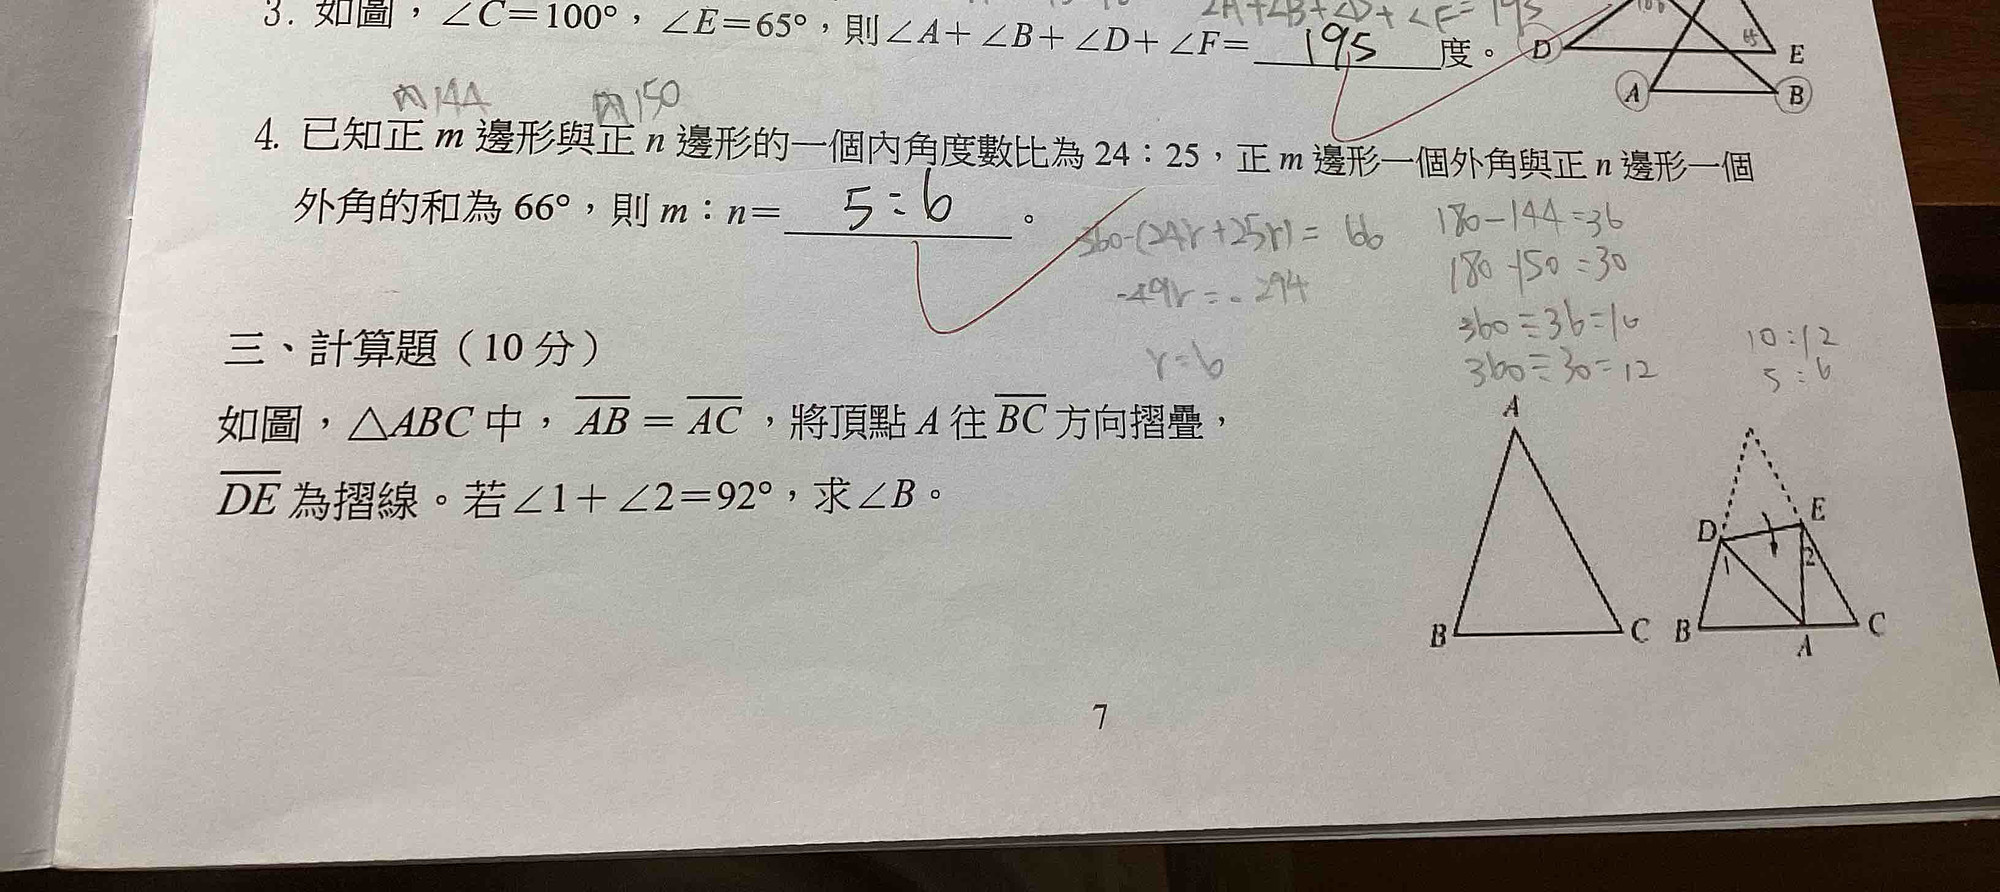 ∠A+∠B+∠D+∠F=195
3. 如圖，∠C＝100°，∠E＝65°，則∠A＋∠B＋∠D＋∠F＝ 195 度。
D
E
A
B
內144 內150
4. 已知正 m 邊形與正 n 邊形的一個內角度數比為 24：25，正 m 邊形一個外角與正 n 邊形一個
外角的和為 66°，則 m：n＝ 5：6 。
360-(24r+25r)=66
-49r=-294
r=6
180-144=36
180-150=30
360÷36=10
360÷30=12
10:12
5:6
三、計算題（10 分）
如圖，△ABC 中，AB＝AC，將頂點 A 往 BC 方向摺疊，
DE 為摺線。若∠1＋∠2＝92°，求∠B。
A
B
C
D
E
1
2
B
A
C
7